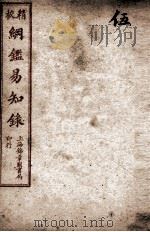 伍
精校
綱鑑易知錄
上海錦章圖書局
印行